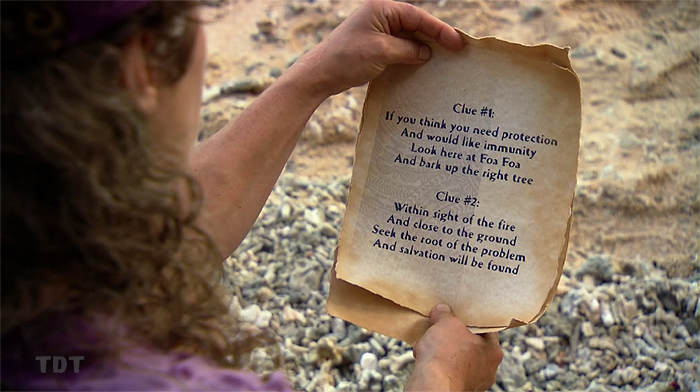 Clue #1:
If you think you need protection
And would like immunity
Look here at Foa Foa
And bark up the right tree
Clue #2:
Within sight of the fire
And close to the ground
Seek the root of the problem
And salvation will be found
TDT